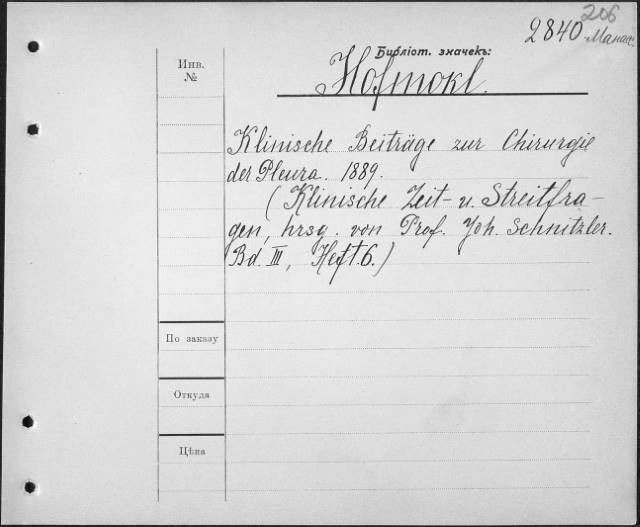 206
2840
Манас.
Библіот. значекъ:
Инв.
№
Hofmokl.
Klinische Beiträge zur Chirurgie
der Pleura. 1889.
(Klinische Zeit- u. Streitfra-
gen, hrsg. von Prof. Joh. Schnitzler.
Bd. III, Heft.6.)
По заказу
Откуда
Цѣна